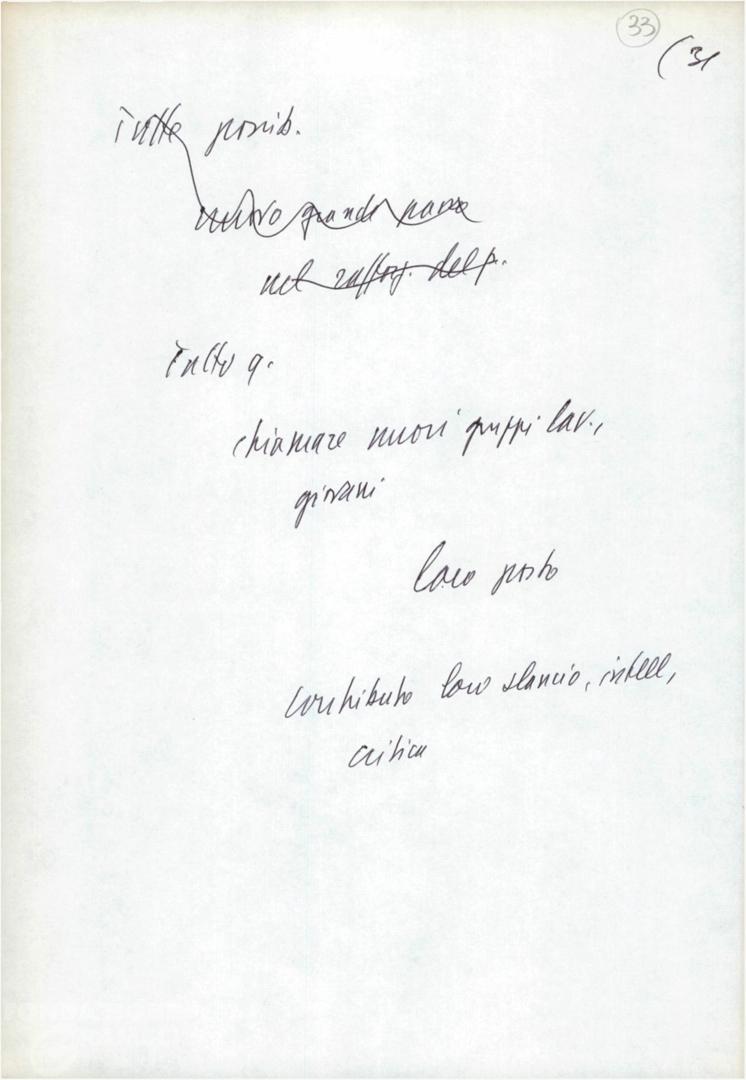 33
(31
Tutte possib.
nuovo grande passo
nel rafforz. del p.
Tutto q.
chiamare nuovi gruppi lav.,
giovani
loro posto
contributo loro slancio, intell,
critica